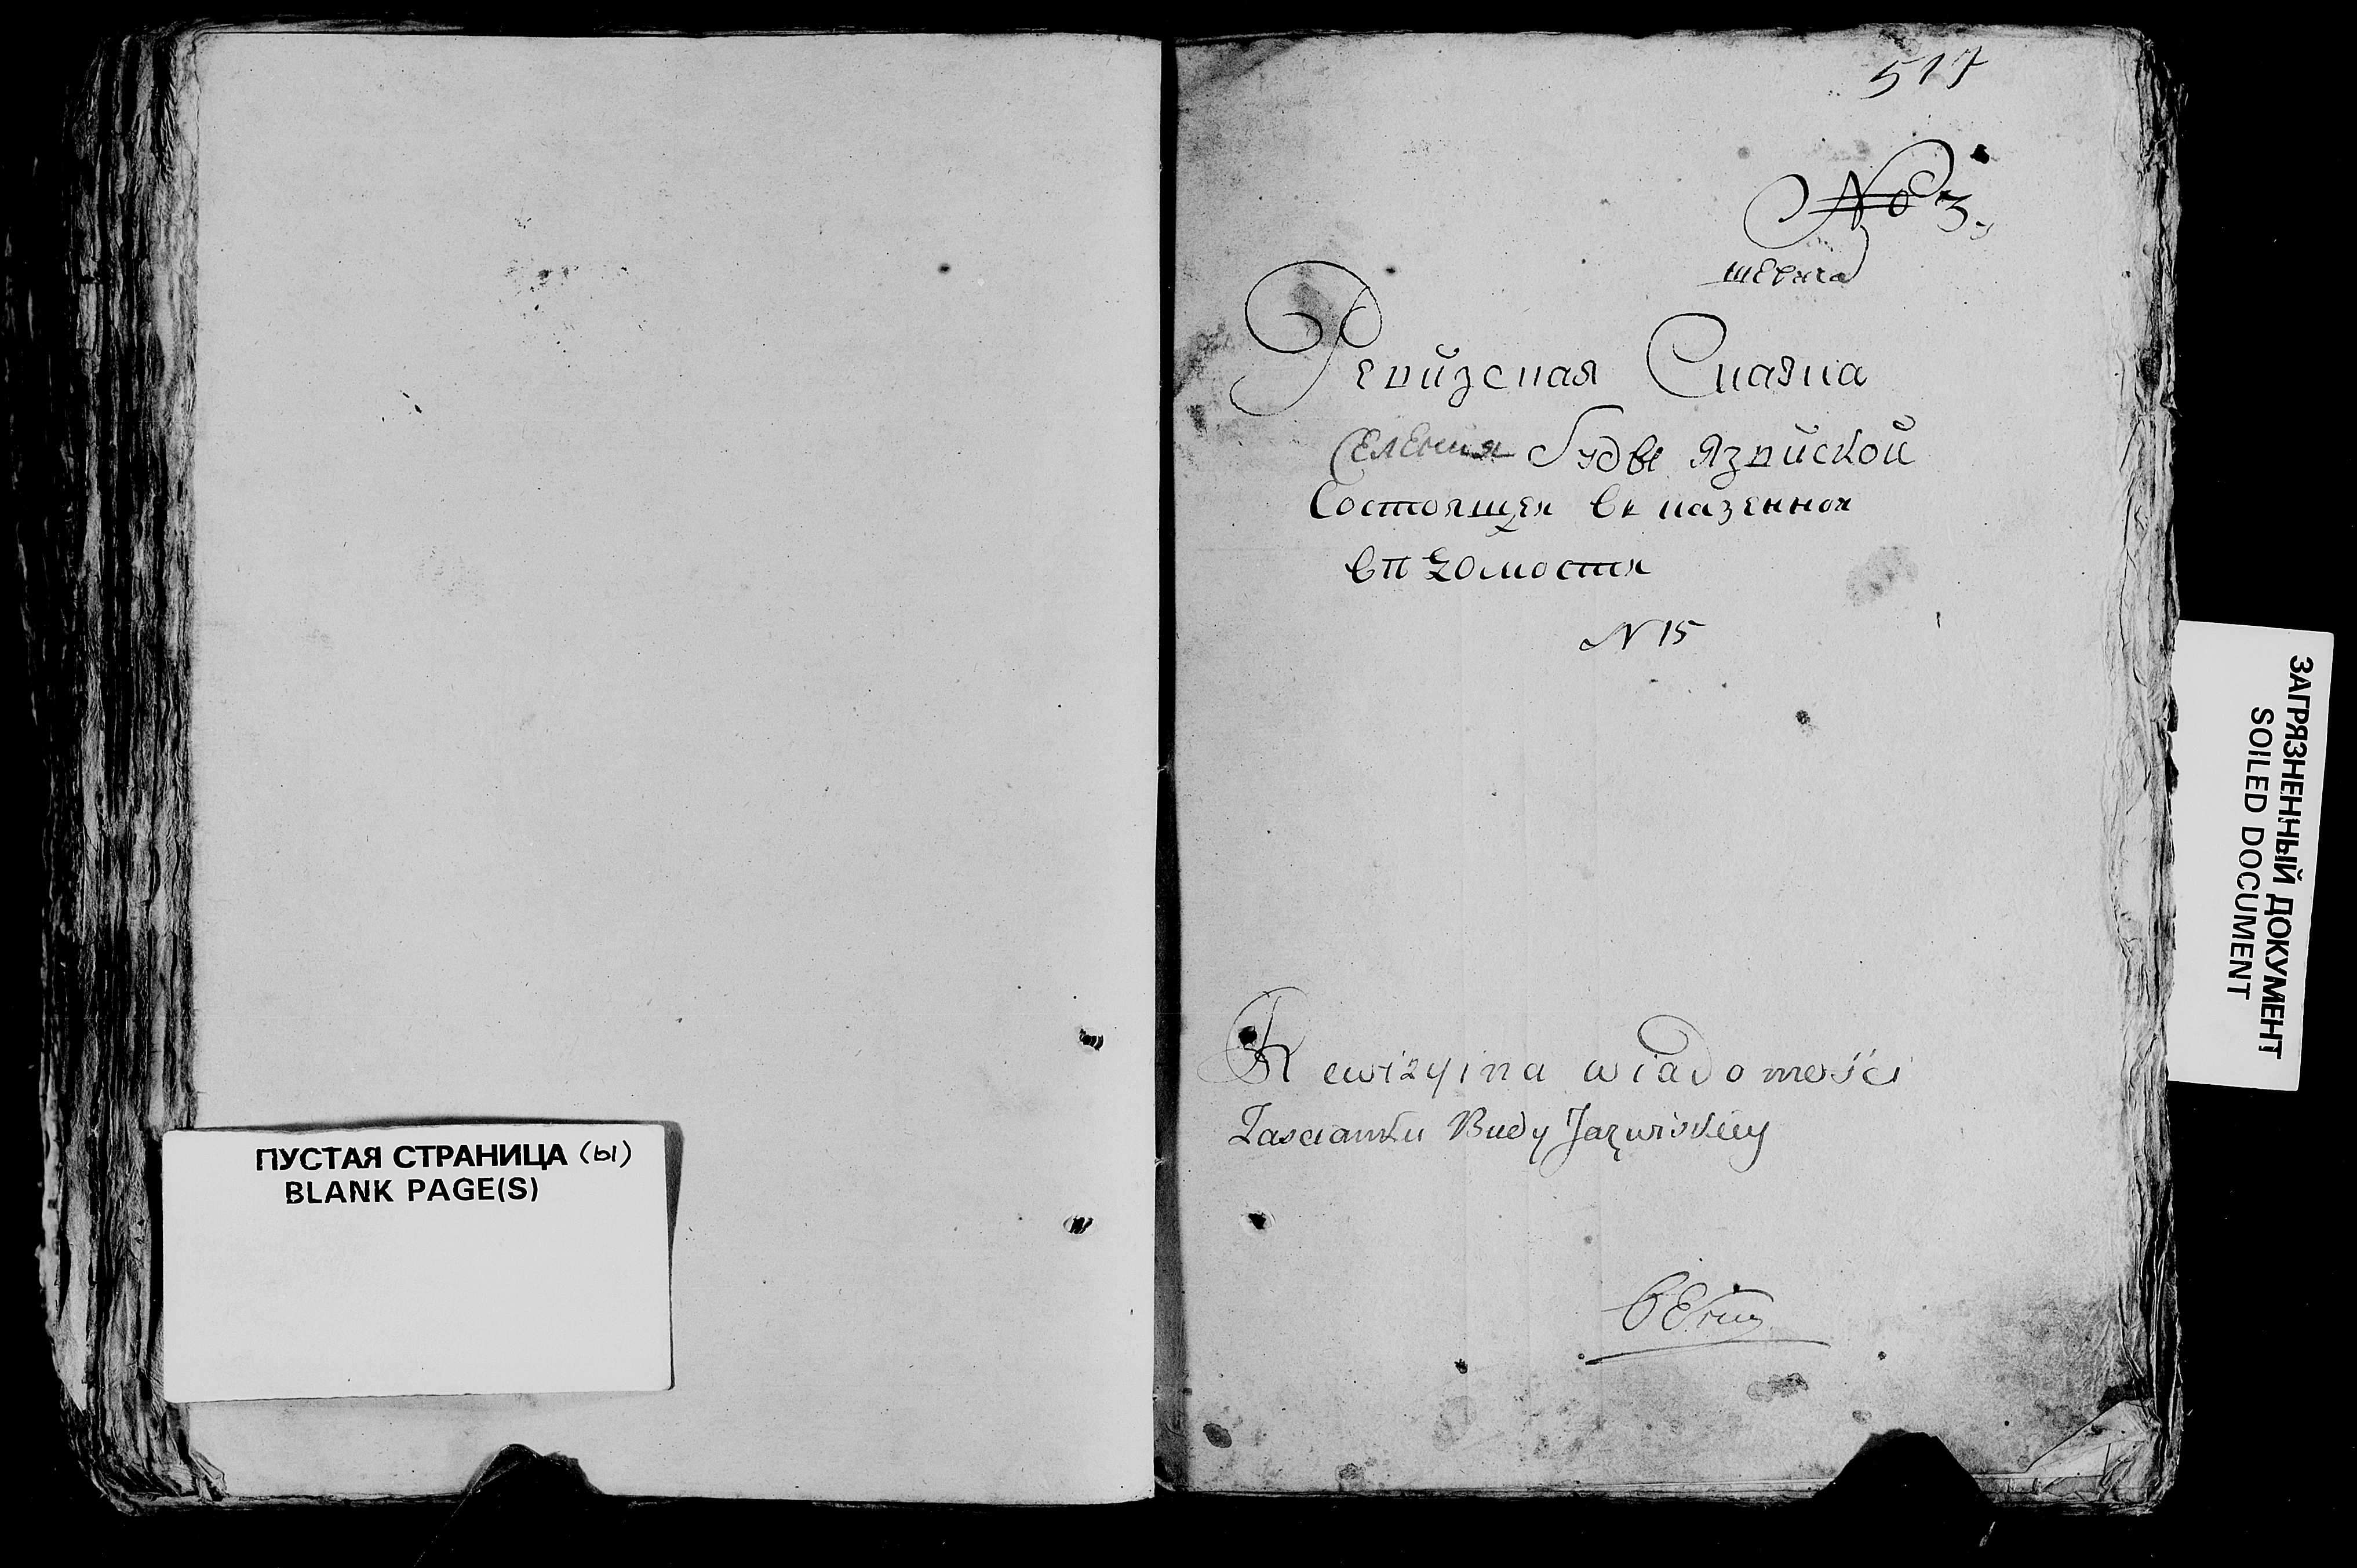 ПУСТАЯ СТРАНИЦА (ы)
BLANK PAGE(S)
517
№ 3.
Ревизская Сказка
Селения Буды Язвиской
Состоящея въ казенном
въдомости
N 15
Rewizyina wiadomości
Zascianku Budy Jazwiskiey
ЗАГРЯЗНЕННЫЙ ДОКУМЕНТ
SOILED DOCUMENT